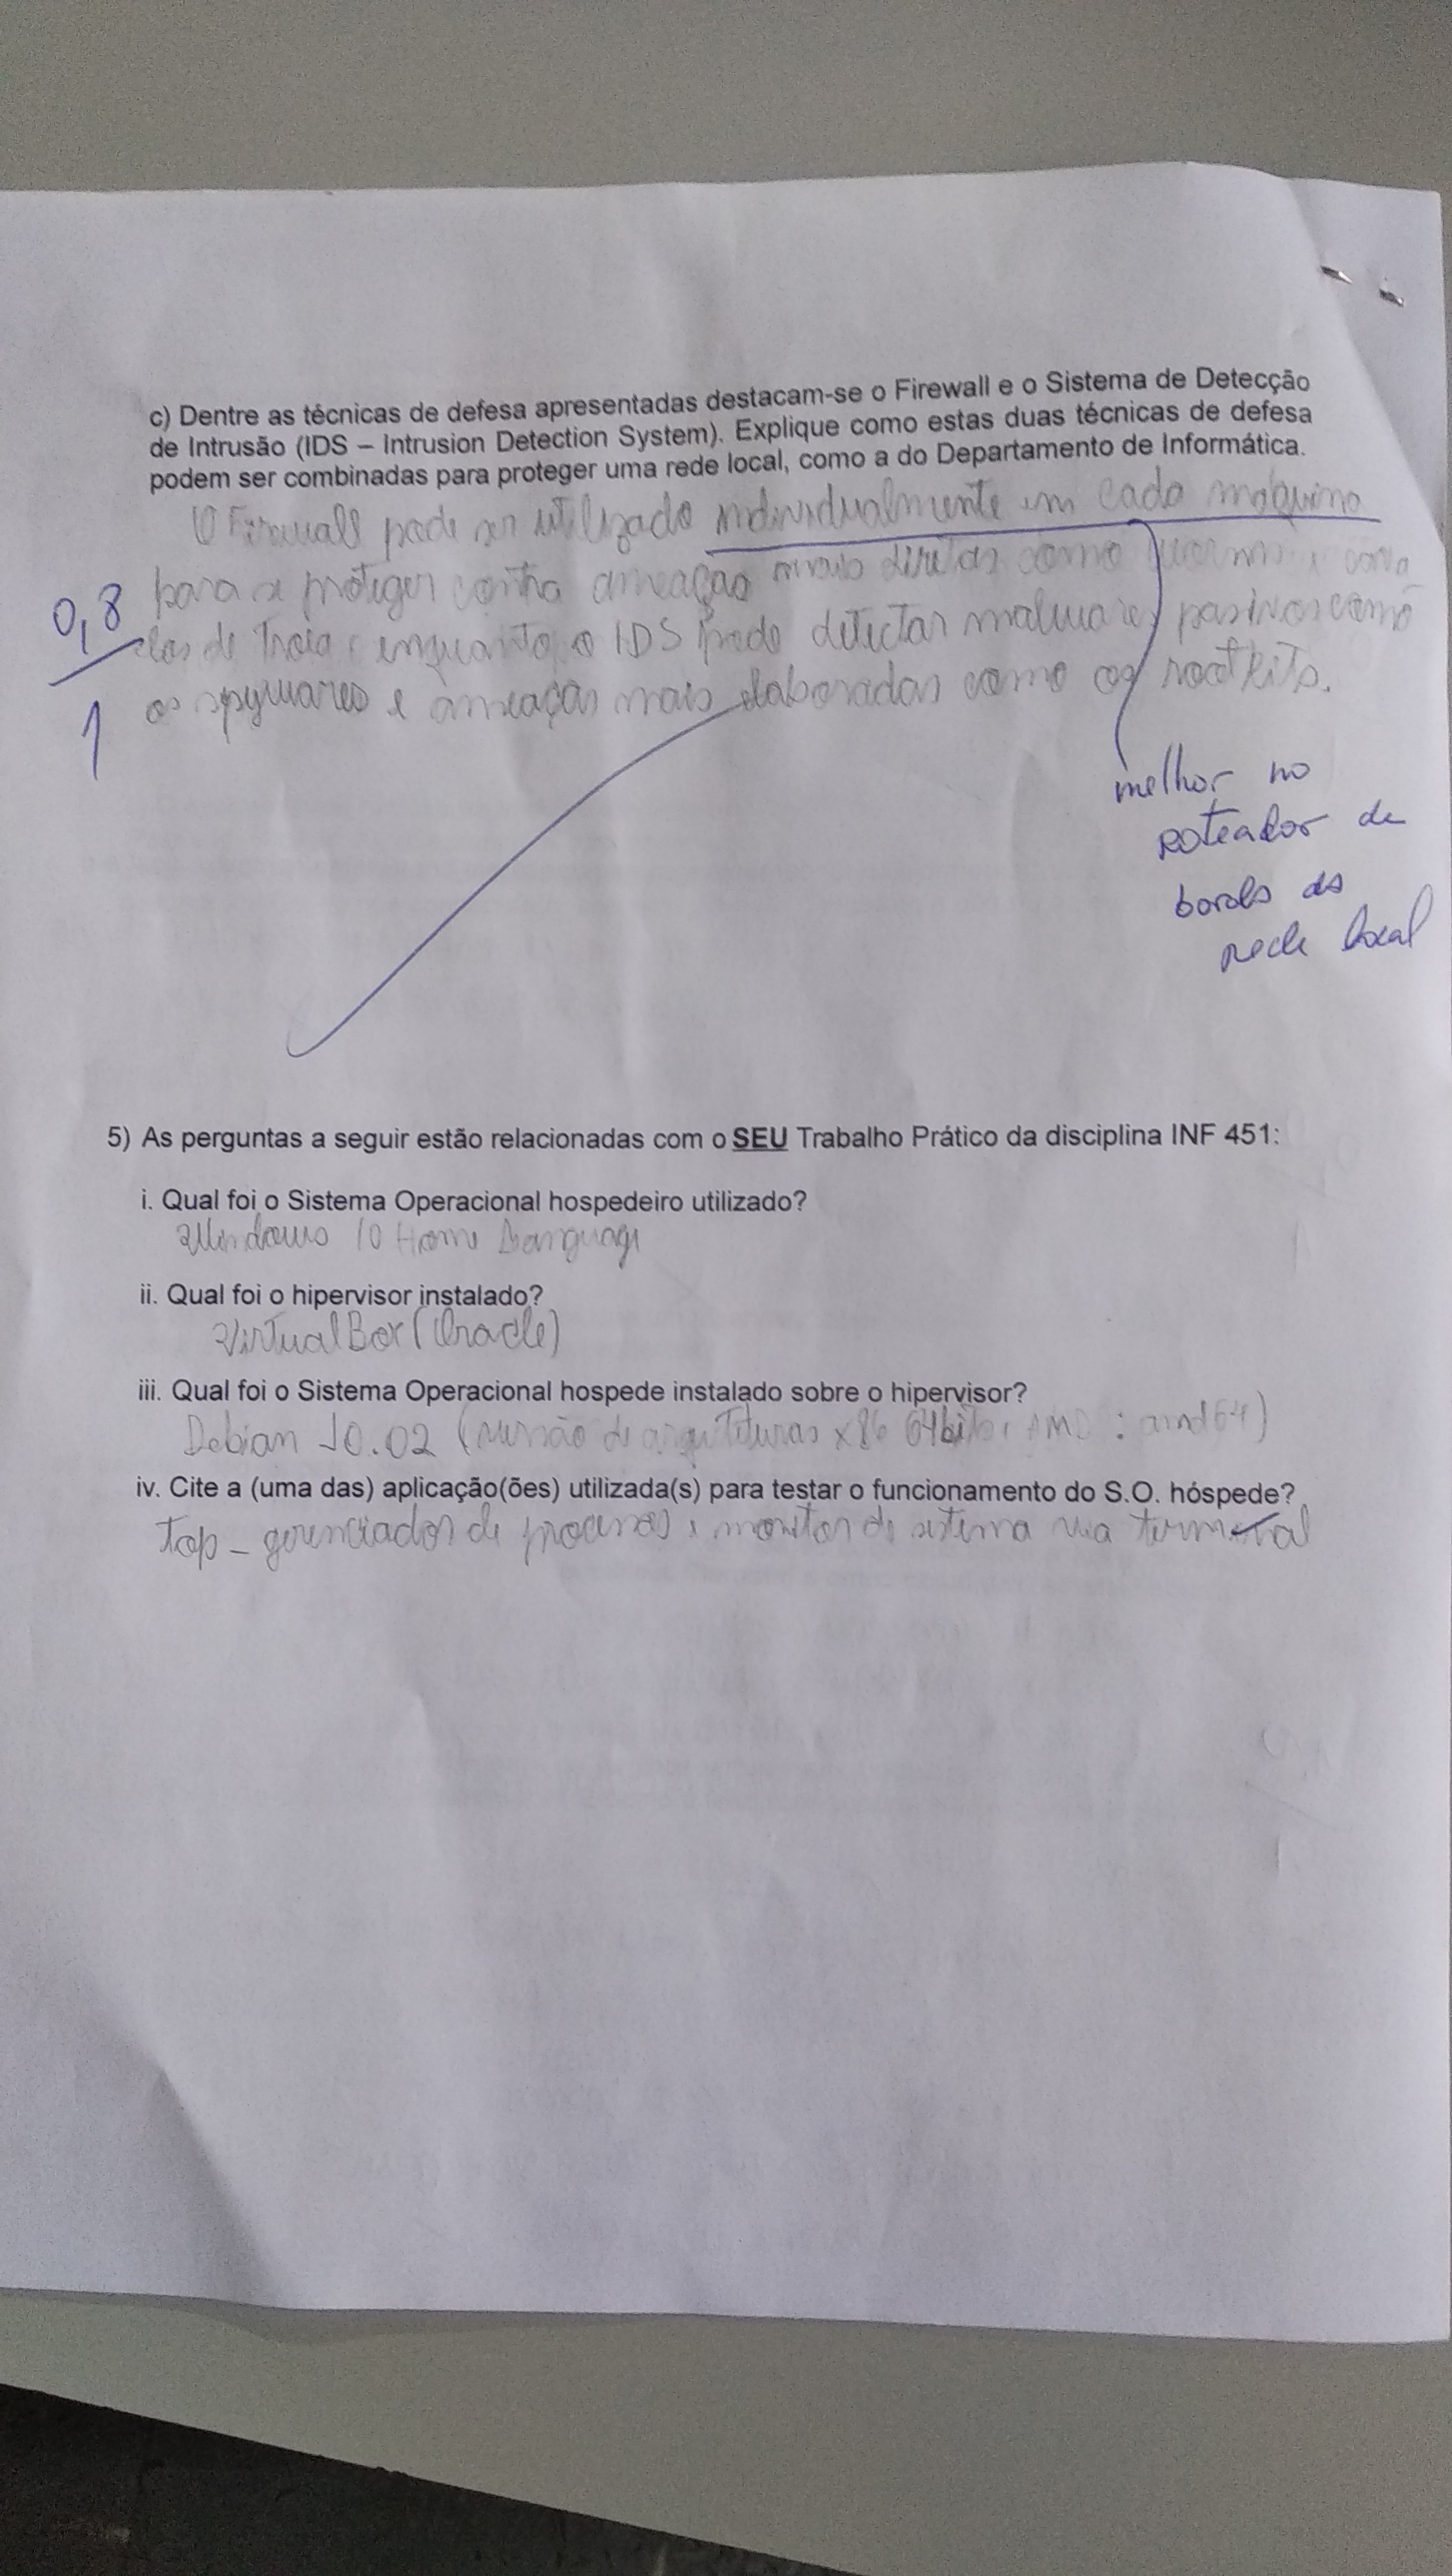 c) Dentre as técnicas de defesa apresentadas destacam-se o Firewall e o Sistema de Detecção
de Intrusão (IDS – Intrusion Detection System). Explique como estas duas técnicas de defesa
podem ser combinadas para proteger uma rede local, como a do Departamento de Informática.
O Firewall pode ser utilizado individualmente em cada máquina
para se proteger contra ameaças mais diretas como worms e cava
0,8
los de Troia, enquanto o IDS pode detectar malwares passivos como
os spywares e ameaças mais elaboradas como os rootkits.
1
melhor no
roteador de
borda da
rede local
5) As perguntas a seguir estão relacionadas com o SEU Trabalho Prático da disciplina INF 451:
i. Qual foi o Sistema Operacional hospedeiro utilizado?
Windows 10 Home Language
ii. Qual foi o hipervisor instalado?
VirtualBox (Oracle)
iii. Qual foi o Sistema Operacional hospede instalado sobre o hipervisor?
Debian 10.02 (versão de arquiteturas x86 64bits AMD : amd64)
iv. Cite a (uma das) aplicação(ões) utilizada(s) para testar o funcionamento do S.O. hóspede?
Top - gerenciador de processos e monitor de sistema via terminal